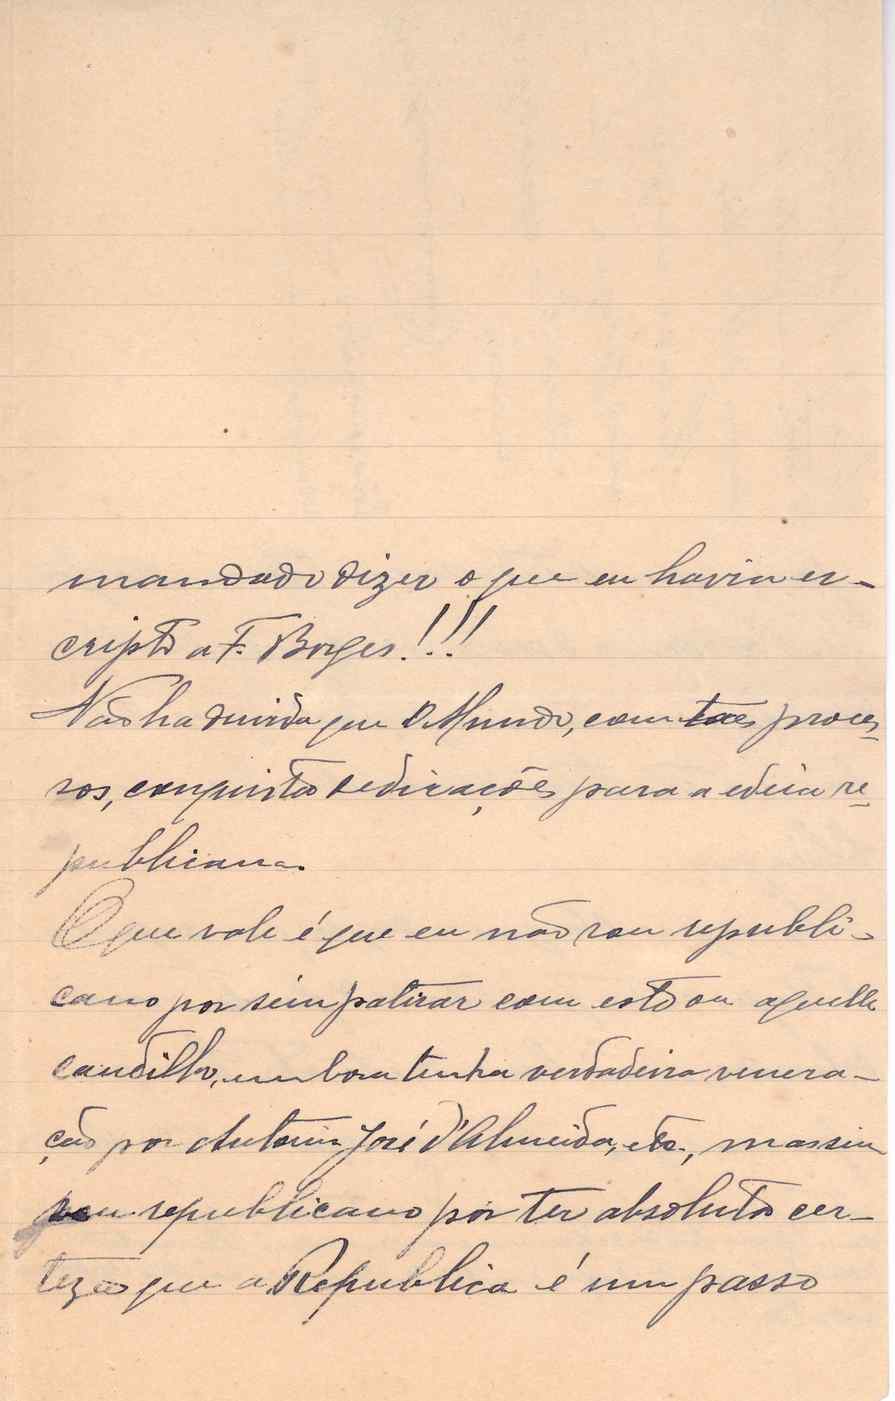 mandado dizer o que eu havia es-
cripto a F. Borges!!!
Não ha duvida que O Mundo, com taes proces-
sos, conquista dedicações para a ideia re-
publicana.
O que vale é que eu não sou republi-
cano por simpatisar com este ou aquelle
caudilho, embora tenha verdadeira venera-
ção por Antonio José d'Almeida, etc., mas sim
sou republicano por ter absoluta cer-
teza que a Republica é um passo